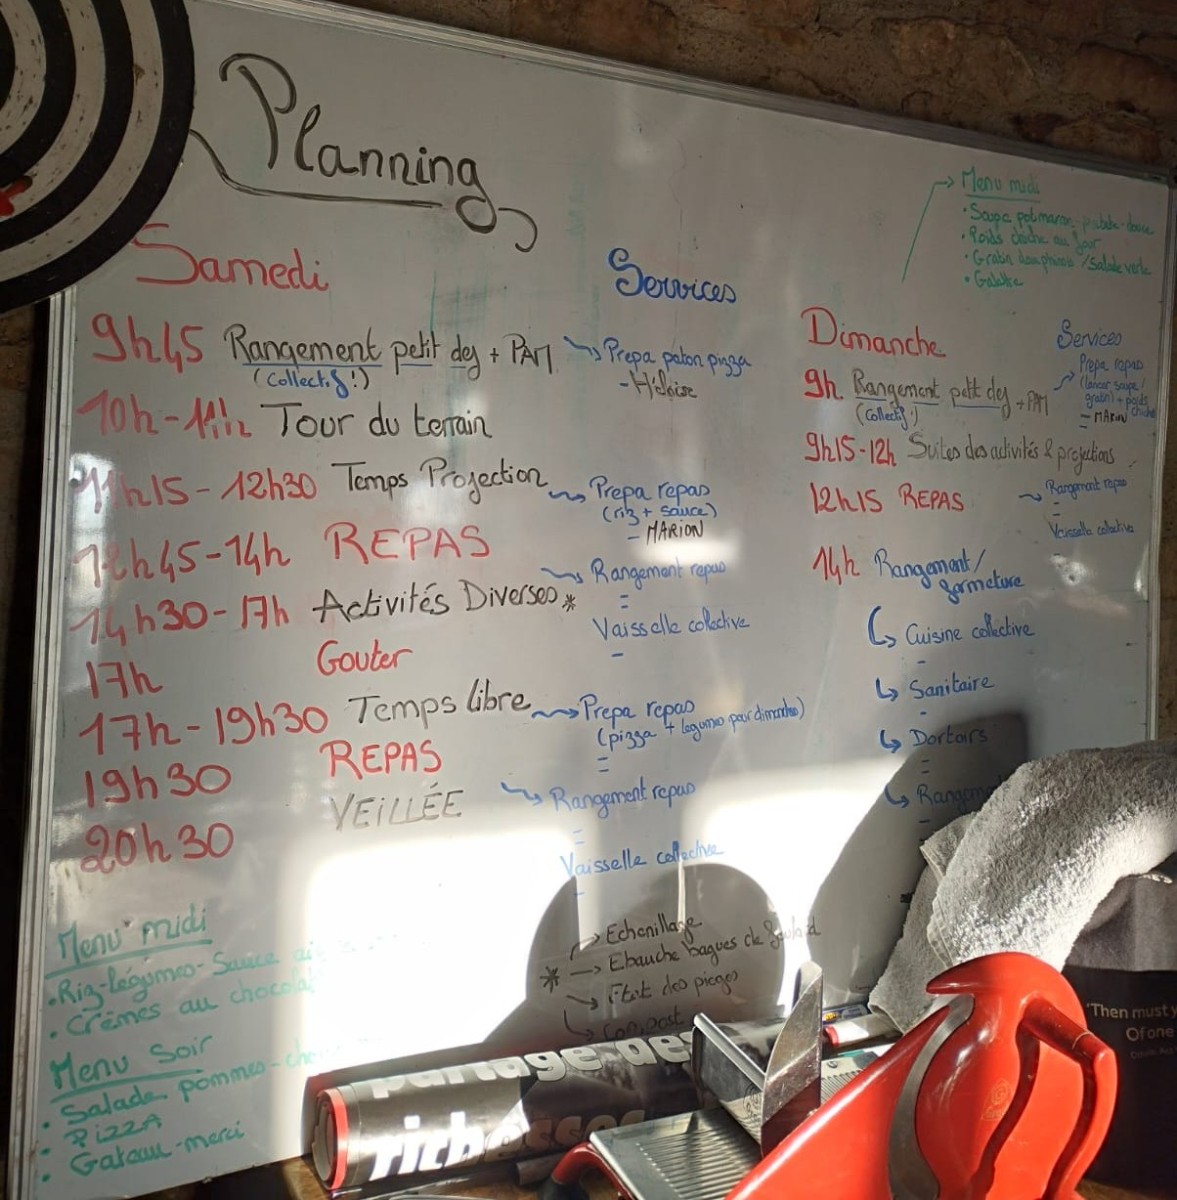 Planning
Samedi
9h45 Rangement petit dej + PAM
(Collectif !)
10h - 11h Tour du terrain
11h15 - 12h30 Temps Projection
12h45 - 14h REPAS
14h30 - 17h Activités Diverses *
17h Gouter
17h - 19h30 Temps libre
19h30 REPAS
20h30 VEILLÉE
Services
Prepa paton pizza
- Héloïse
Prepa repas
(riz + sauce)
- MARION
Rangement repas
Vaisselle collective
Prepa repas
(pizza + legumes pour dimanche)
Rangement repas
Vaisselle collective
Menu midi
• Soupe potimarron - patate - douce
• Poids chiche au four
• Gratin dauphinois / Salade verte
• Galette
Dimanche
9h Rangement petit dej + PAM
(Collectif !)
9h15 - 12h Suites des activités & projections
12h15 REPAS
14h Rangement /
fermeture
Cuisine collective
Sanitaire
Dortoirs
Services
Prepa repas
(lancer soupe /
gratin) + poids
chiche
- MARION
Rangement repas
Vaisselle collective
Menu midi
• Riz - légumes - Sauce
• Crèmes au chocolat
Menu Soir
• Salade pommes -
• PIZZA
• Gateau - marci
* Echenillage
Ebauche bagues de
Etat des pieges
Compost
partage des
richesses
'Then must y
Of one